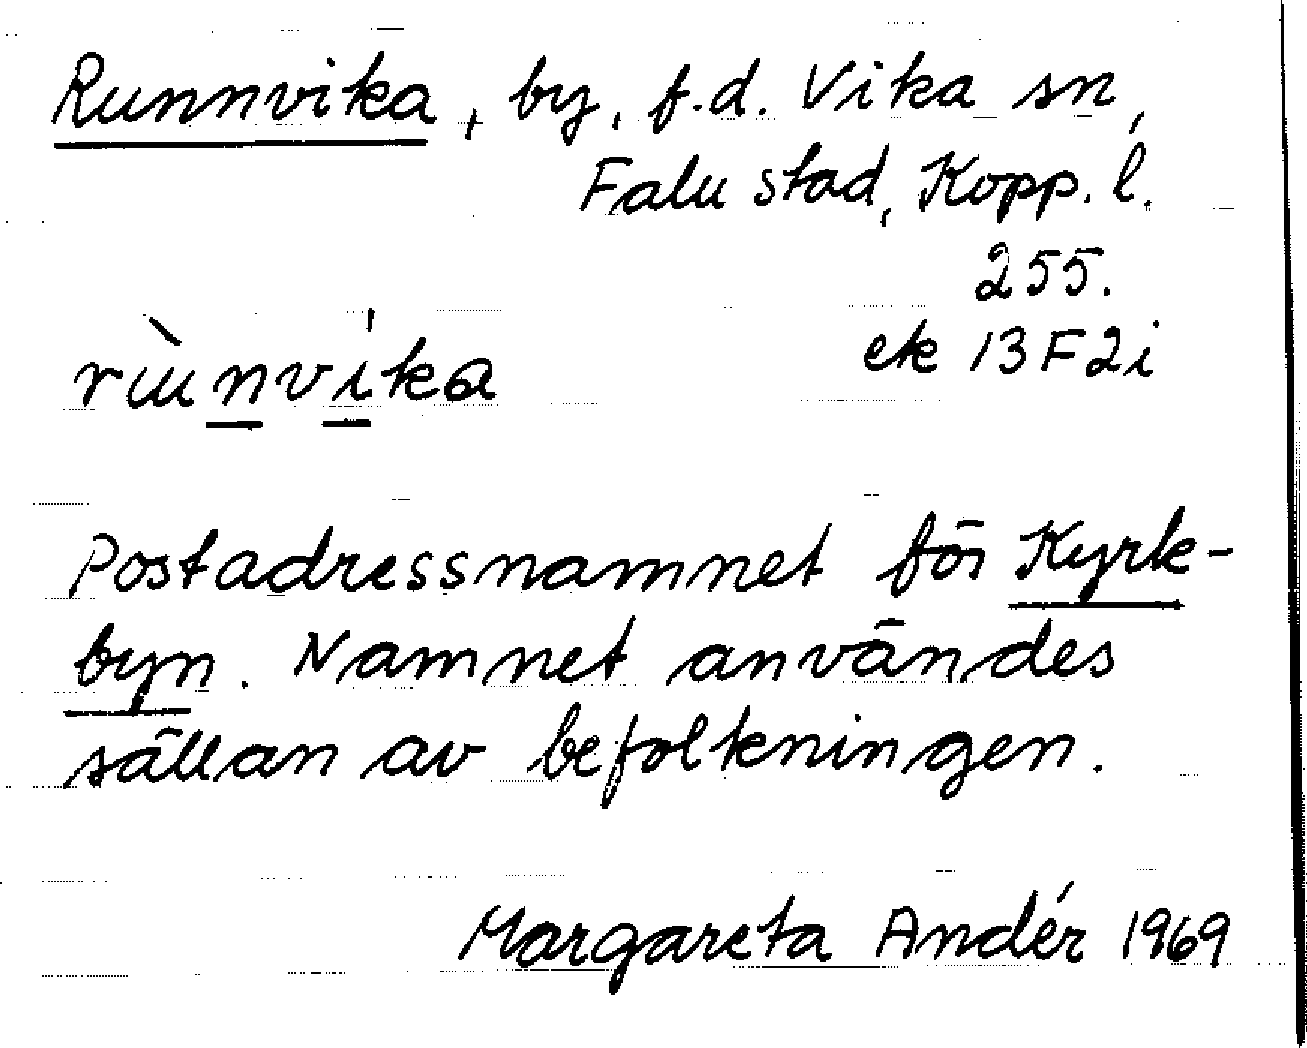 Runnvika, by, f.d. Vika sn,
Falu stad, Kopp. l.
255.
ek 13F2i
rɯ̀nvíka
Postadressnamnet för Kyrk-
byn. Namnet användes
sällan av befolkningen.
Margareta Andér 1969